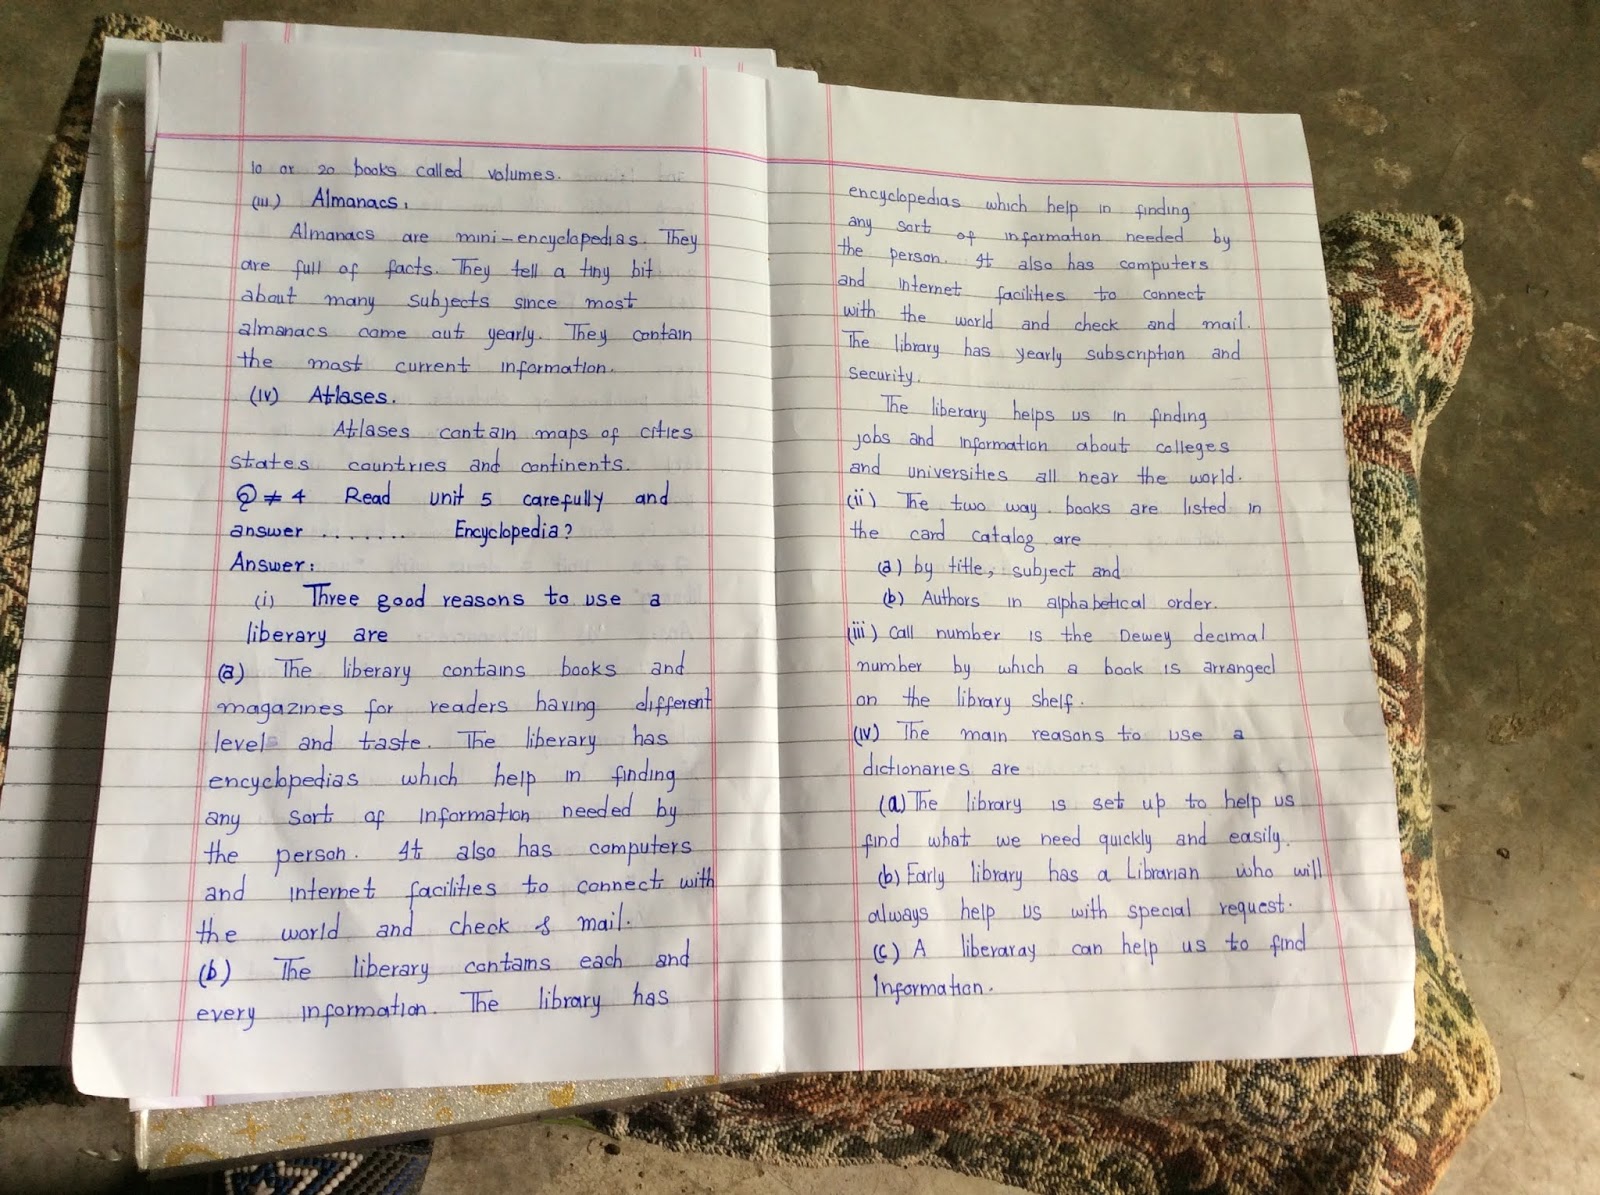 10 or 20 books called volumes.
(iii) Almanacs,
Almanacs are mini-encyclopedias. They
are full of facts. They tell a tiny bit
about many subjects since most
almanacs come out yearly. They contain
the most current information.
(iv) Atlases.
Atlases contain maps of cities
states countries and continents.
Q ≠ 4 Read unit 5 carefully and
answer ....... Encyclopedia?
Answer:
(i) Three good reasons to use a
liberary are
(a) The liberary contains books and
magazines for readers having different
levels and taste. The liberary has
encyclopedias which help in finding
any sort of information needed by
the person. It also has computers
and internet facilities to connect with
the world and check & mail.
(b) The liberary contains each and
every information. The library has
encyclopedias which help in finding
any sort of information needed by
the person. It also has computers
and Internet facilities to connect
with the world and check and mail.
The library has yearly subscription and
security.
The liberary helps us in finding
jobs and information about colleges
and universities all near the world.
(ii) The two way books are listed in
the card catalog are
(a) by title, subject and
(b) Authors in alphabetical order.
(iii) call number is the Dewey decimal
number by which a book is arranged
on the library shelf.
(iv) The main reasons to use a
dictionaries are
(a) The library is set up to help us
find what we need quickly and easily.
(b) Early library has a Librarian who will
always help us with special request.
(c) A liberaray can help us to find
Information.